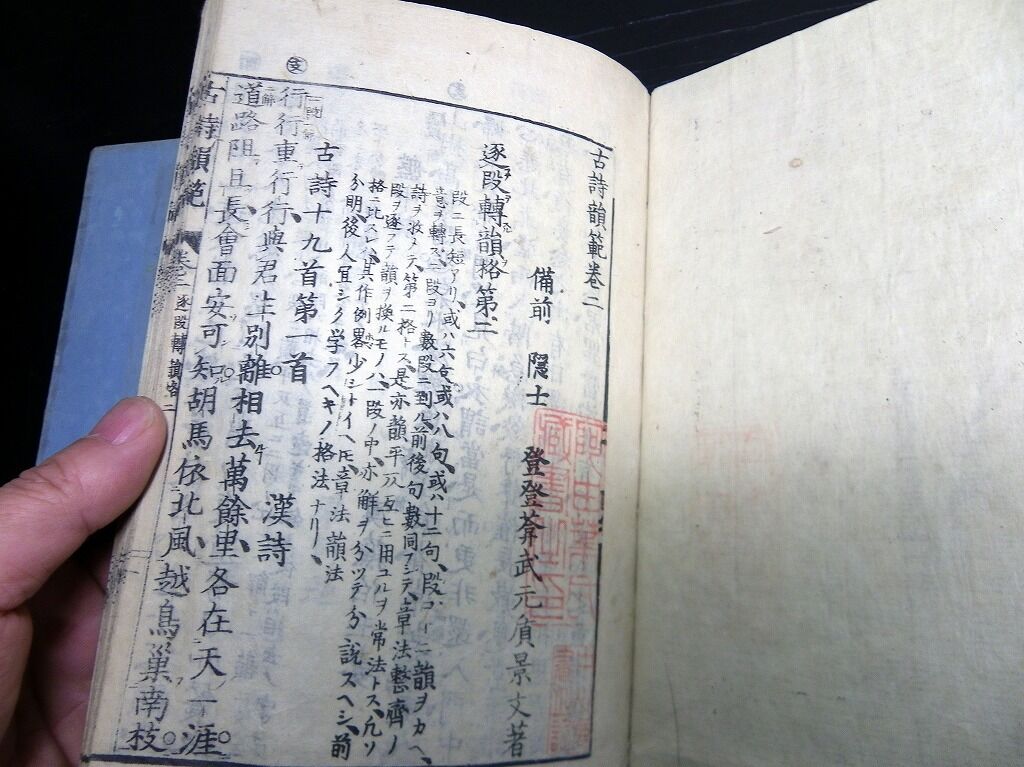 古詩韻範卷二
備前 隱士 登登菴武元質景文著
逐段轉韻格第二
段ニ長短アリ、或ハ六句、或ハ八句、或ハ十二句、段ゴトニ韻ヲカヘ、
意ヲ轉ズ、二段ヨリ數段ニ到ル、前後句數同フシテ、章法整齊ノ
詩ヲ收メテ第二格トス、是亦韻平仄互ヒニ用ユルヲ常法トス、凡ソ
段ヲ逐フテ韻ヲ換ルモノハ、一段ノ中、亦解ヲ分ツテ分說スヘシ、前
格ニ比スレハ、其作例畧少シトイヘ𪜈、章法韻法
分明、後人宜シク学フヘキノ格法ナリ、
古詩十九首第一首 漢詩
㊛
行行重行行、與君生別離、相去萬餘里、各在天一涯。
道路阻且長、會面安可知。胡馬依北風、越鳥巢南枝。
古詩韻範 卷之二 逐段轉韻格 二